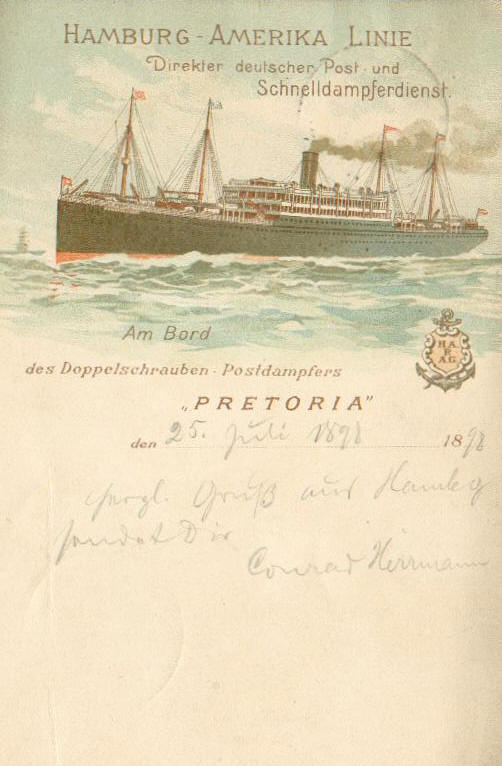 HAMBURG - AMERIKA LINIE
Direkter deutscher Post- und
Schnelldampferdienst.
Am Bord
H.A.
P.
A.G.
des Doppelschrauben-Postdampfers
„PRETORIA"
den 25. Juli 1898 1898
herzl. Gruß aus Hambg
sendet Dir
Conrad Herrmann